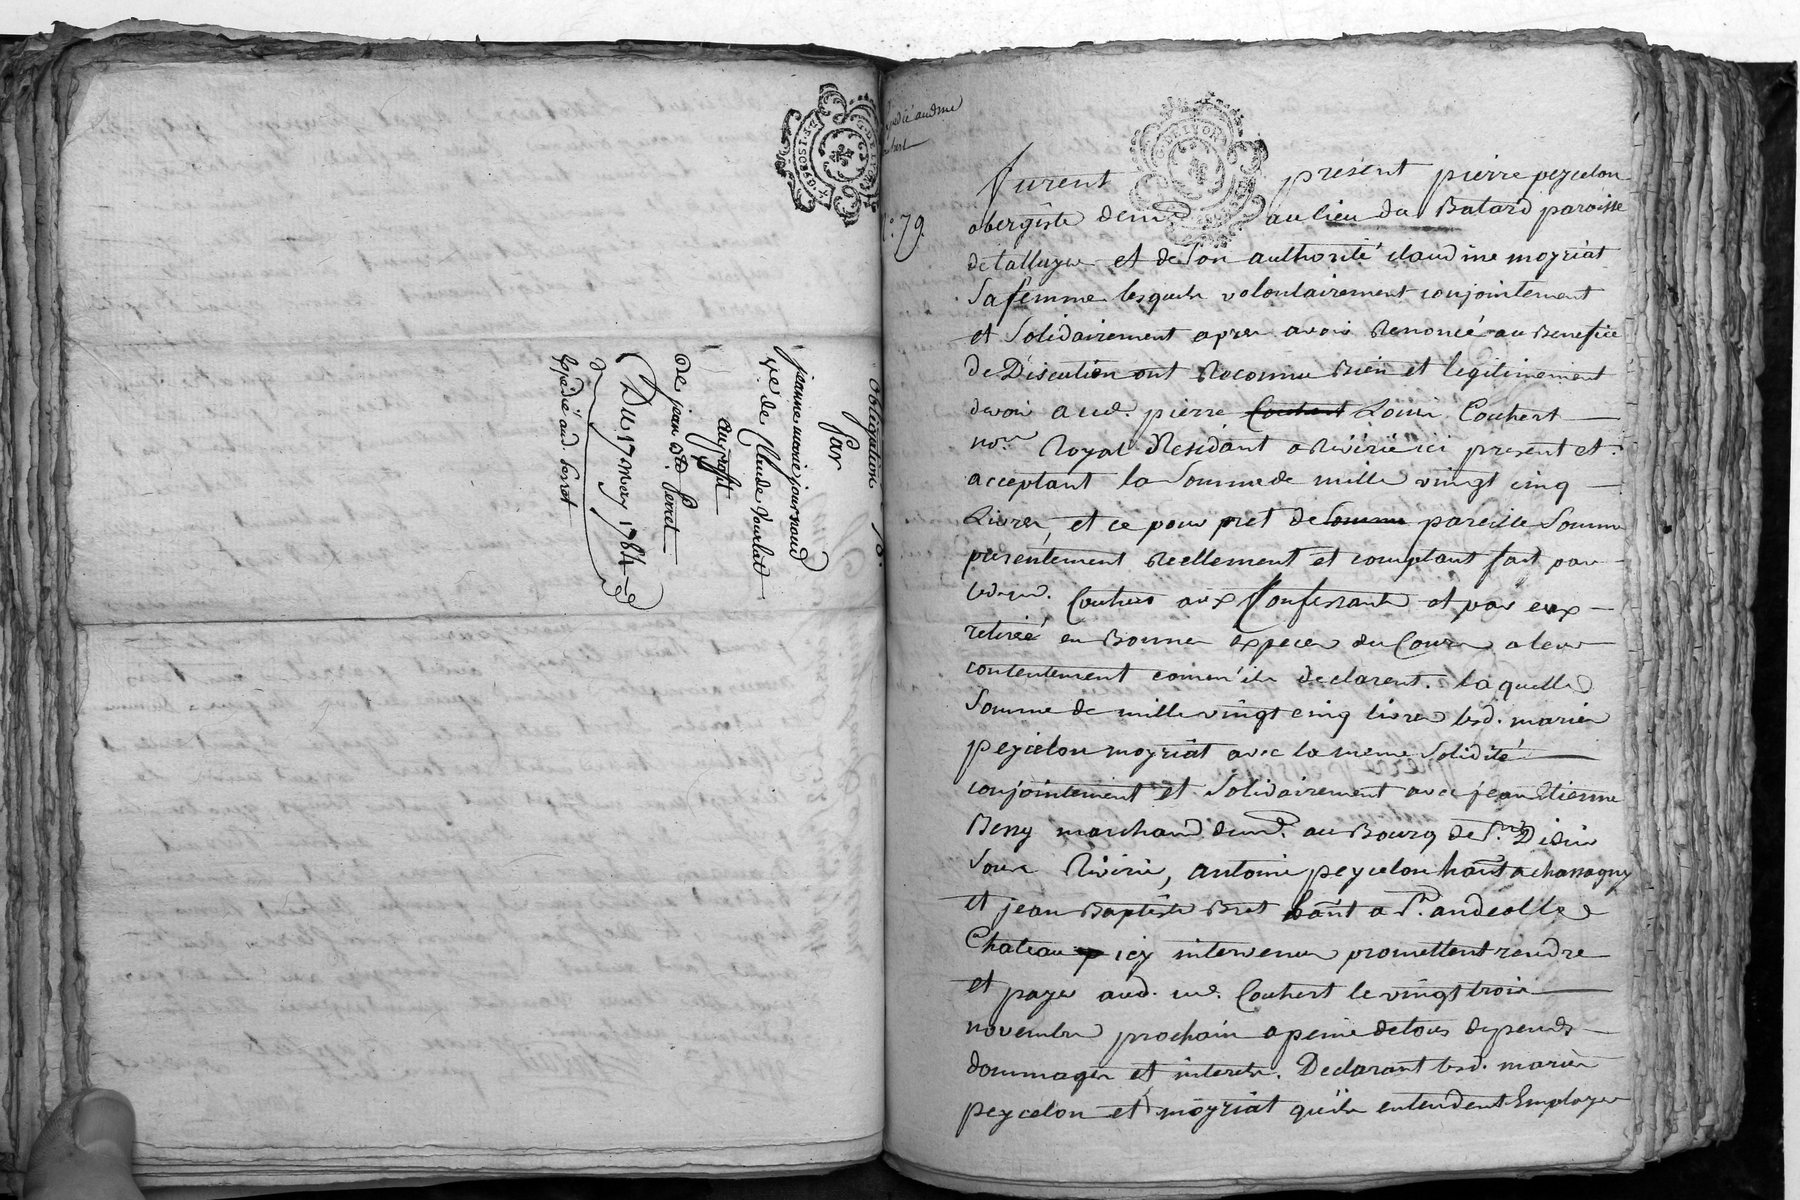 obligation
par
jeanne marie journoud
ve. de Claude Tourlat
au profit
de jean Bte. Perret
Du 17 may 1784
Expédié aud. Perret
G. DE LYON
Expedié aud me
Couhert
N°. 79.
furent présent pierre peycelon
obergiste demt. au lieu du Batard paroisse
de talluyer et de son authorité claudine moyriat
sa femme lesquels volontairement conjointement
et solidairement apres avoir Renoncé au Benefice
de Discution ont Reconnu Bien et legitimement
devoir a me. pierre Couhert Louis Couhert
nore. Royal Residant a Riverie ici present et
acceptant la Somme de mille vingt cinq
Livres, et ce pour pret de Somme pareille Somme
presentement Reellement et comptant fait par
led. me. Couhert aux Confessants et par eux
retirée en Bonnes especes du Cours a leur
contentement comm'ils declarent. laquelle
Somme de mille vingt cinq livres lesd. mariés
peycelon moyriat avec la meme solidité
conjointement et solidairement avec jean Etienne
Beny marchand demt. au Bourg de St. Didier
sous Riverie, antoine peycelon habt. a chassagny
et jean Baptiste Bret habt. a St. andeol le
Chateau icy intervenus promettent rendre
et payer aud. me. Couhert le vingt trois
novembre prochain a peine de tous depends
dommages et interets. Declarant lesd. mariés
peycelon et moyriat qu'ils entendent Employer